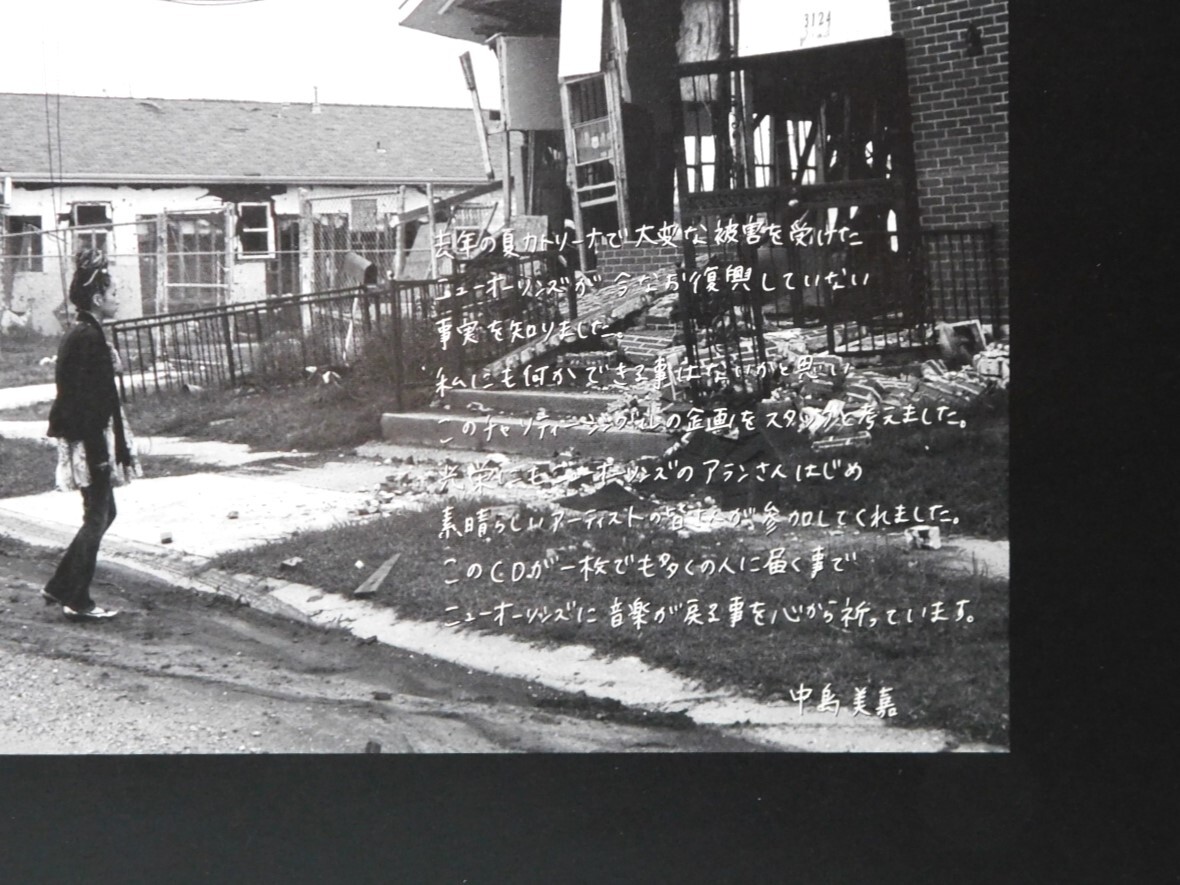 3124
去年の夏カトリーナで大変な被害を受けた
ニューオーリンズが今なお復興していない
事実を知りました。
私にも何かできる事はないかと思い
このチャリティーシングルの企画をスタッフと考えました。
光栄にもニューオーリンズのアランさんはじめ
素晴らしいアーティストの皆さんが参加してくれました。
このCDが一枚でも多くの人に届く事で
ニューオーリンズに音楽が戻る事を心から祈っています。
中島美嘉